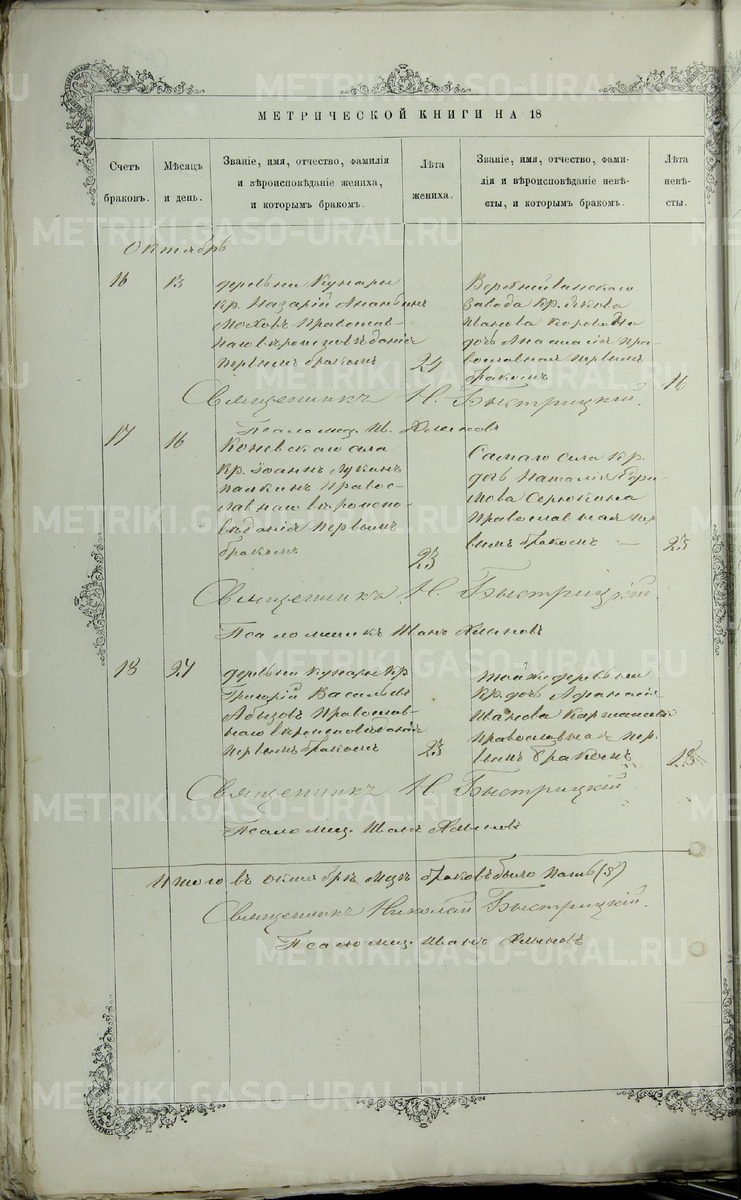 МЕТРИЧЕСКОЙ КНИГИ НА 18
Счетъ
браковъ.
Мѣсяцъ
и день.
Званіе, имя, отчество, фамилія
и вѣроисповѣданіе жениха,
и которымъ бракомъ.
Лѣта
жениха.
Званіе, имя, отчество, фами-
лія и вѣроисповѣданіе невѣ-
сты, и которымъ бракомъ.
Лѣта
невѣ-
сты.
Октябрь
16
13
деревни Кунары
кр. Назарій Ананьинъ
Православ-
наго вѣроисповѣданія
первымъ бракомъ
24
завода кр.
Иванова
дочь Анастасія пра-
вославная первымъ
бракомъ
16
Священникъ Н. Быстрицкій.
Псаломщ. И. Хлыновъ
17
16
Коневскаго села
кр. Іоаннъ Лукинъ
Правос-
лавнаго вѣроиспо-
вѣданія первымъ
бракомъ
23
села кр.
дочь Наталія
Православная пер-
вымъ бракомъ —
23
Священникъ Н. Быстрицкій
Псаломщикъ Иванъ Хлыновъ
18
27
деревни Кунары кр.
Григорій Васильевъ
Абызовъ Православ-
наго вѣроисповѣданія
первымъ бракомъ
23
той же деревни
кр. дочь
Иванова
православная пер-
вымъ бракомъ
18
Священникъ Н. Быстрицкій
Псаломщ. Иванъ Хлыновъ
Итого въ октябрѣ м-цѣ браковъ было пять (5)
Священникъ Николай Быстрицкій.
Псаломщ. Иванъ Хлыновъ
METRIKI.GASO-URAL.RU